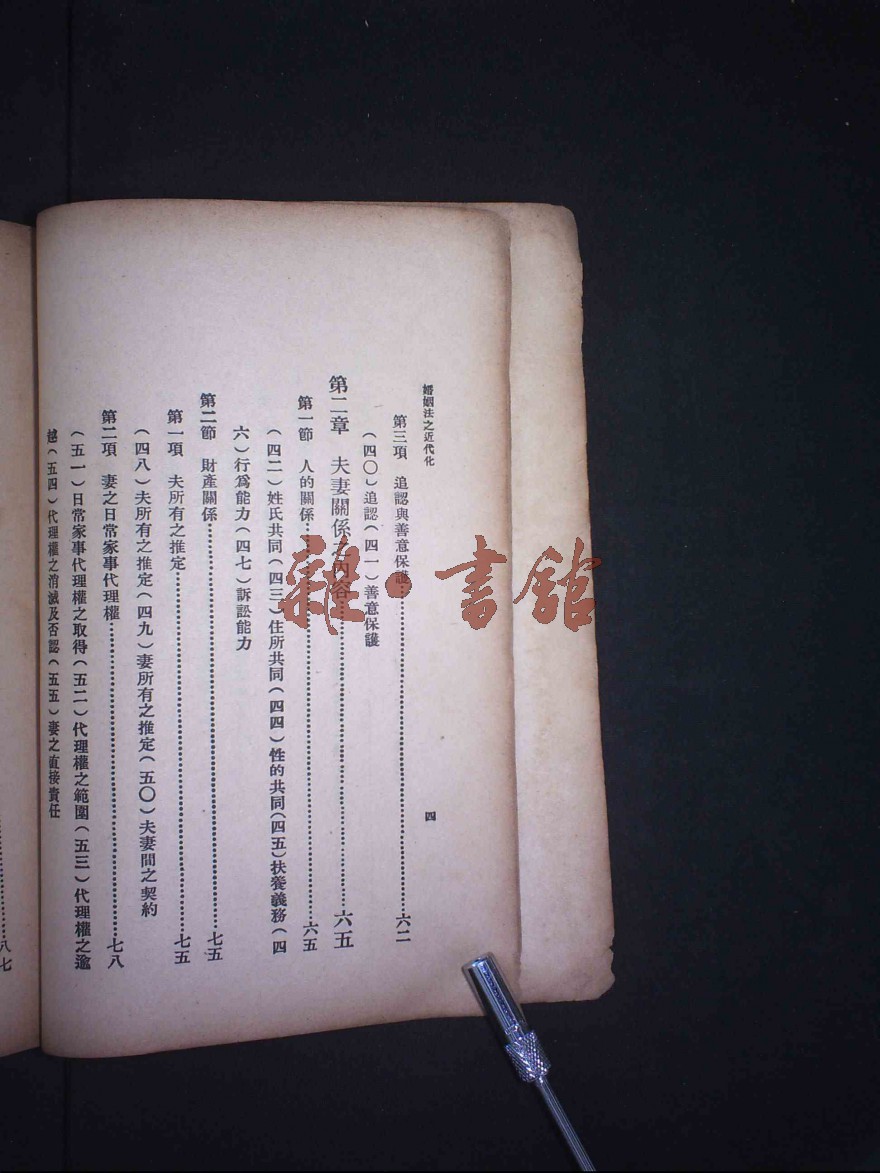 婚姻法之近代化
四
第三項 追認與善意保護………六二
(四〇)追認(四一)善意保護
第二章 夫妻關係之內容………六五
第一節 人的關係………六五
(四二)姓氏共同(四三)住所共同(四四)性的共同(四五)扶養義務(四
六)行爲能力(四七)訴訟能力
第二節 財產關係………七五
第一項 夫所有之推定………七五
(四八)夫所有之推定(四九)妻所有之推定(五〇)夫妻間之契約
第二項 妻之日常家事代理權………七八
(五一)日常家事代理權之取得(五二)代理權之範圍(五三)代理權之逾
越(五四)代理權之消滅及否認(五五)妻之直接責任
八七
雜·書館